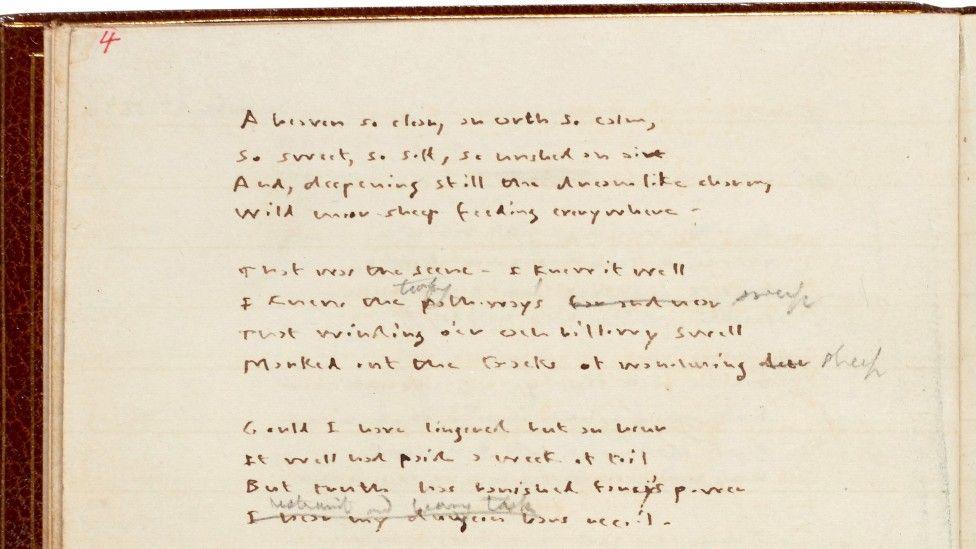 4
A heaven so clear, an earth so calm,
So sweet, so soft, so hushed an air
And, deepening still the dreamlike charm,
Wild moor-sheep feeding everywhere -
That was the scene - I knew it well
turfy
I knew the pathways far and near sweep
That winding o'er each billowy swell
Marked out the tracks of wandering deer sheep
Could I have lingered but an hour
It well had paid a week of toil
But truth has banished fancy's power
restraint and heavy task
I hear my dungeon bars recoil -